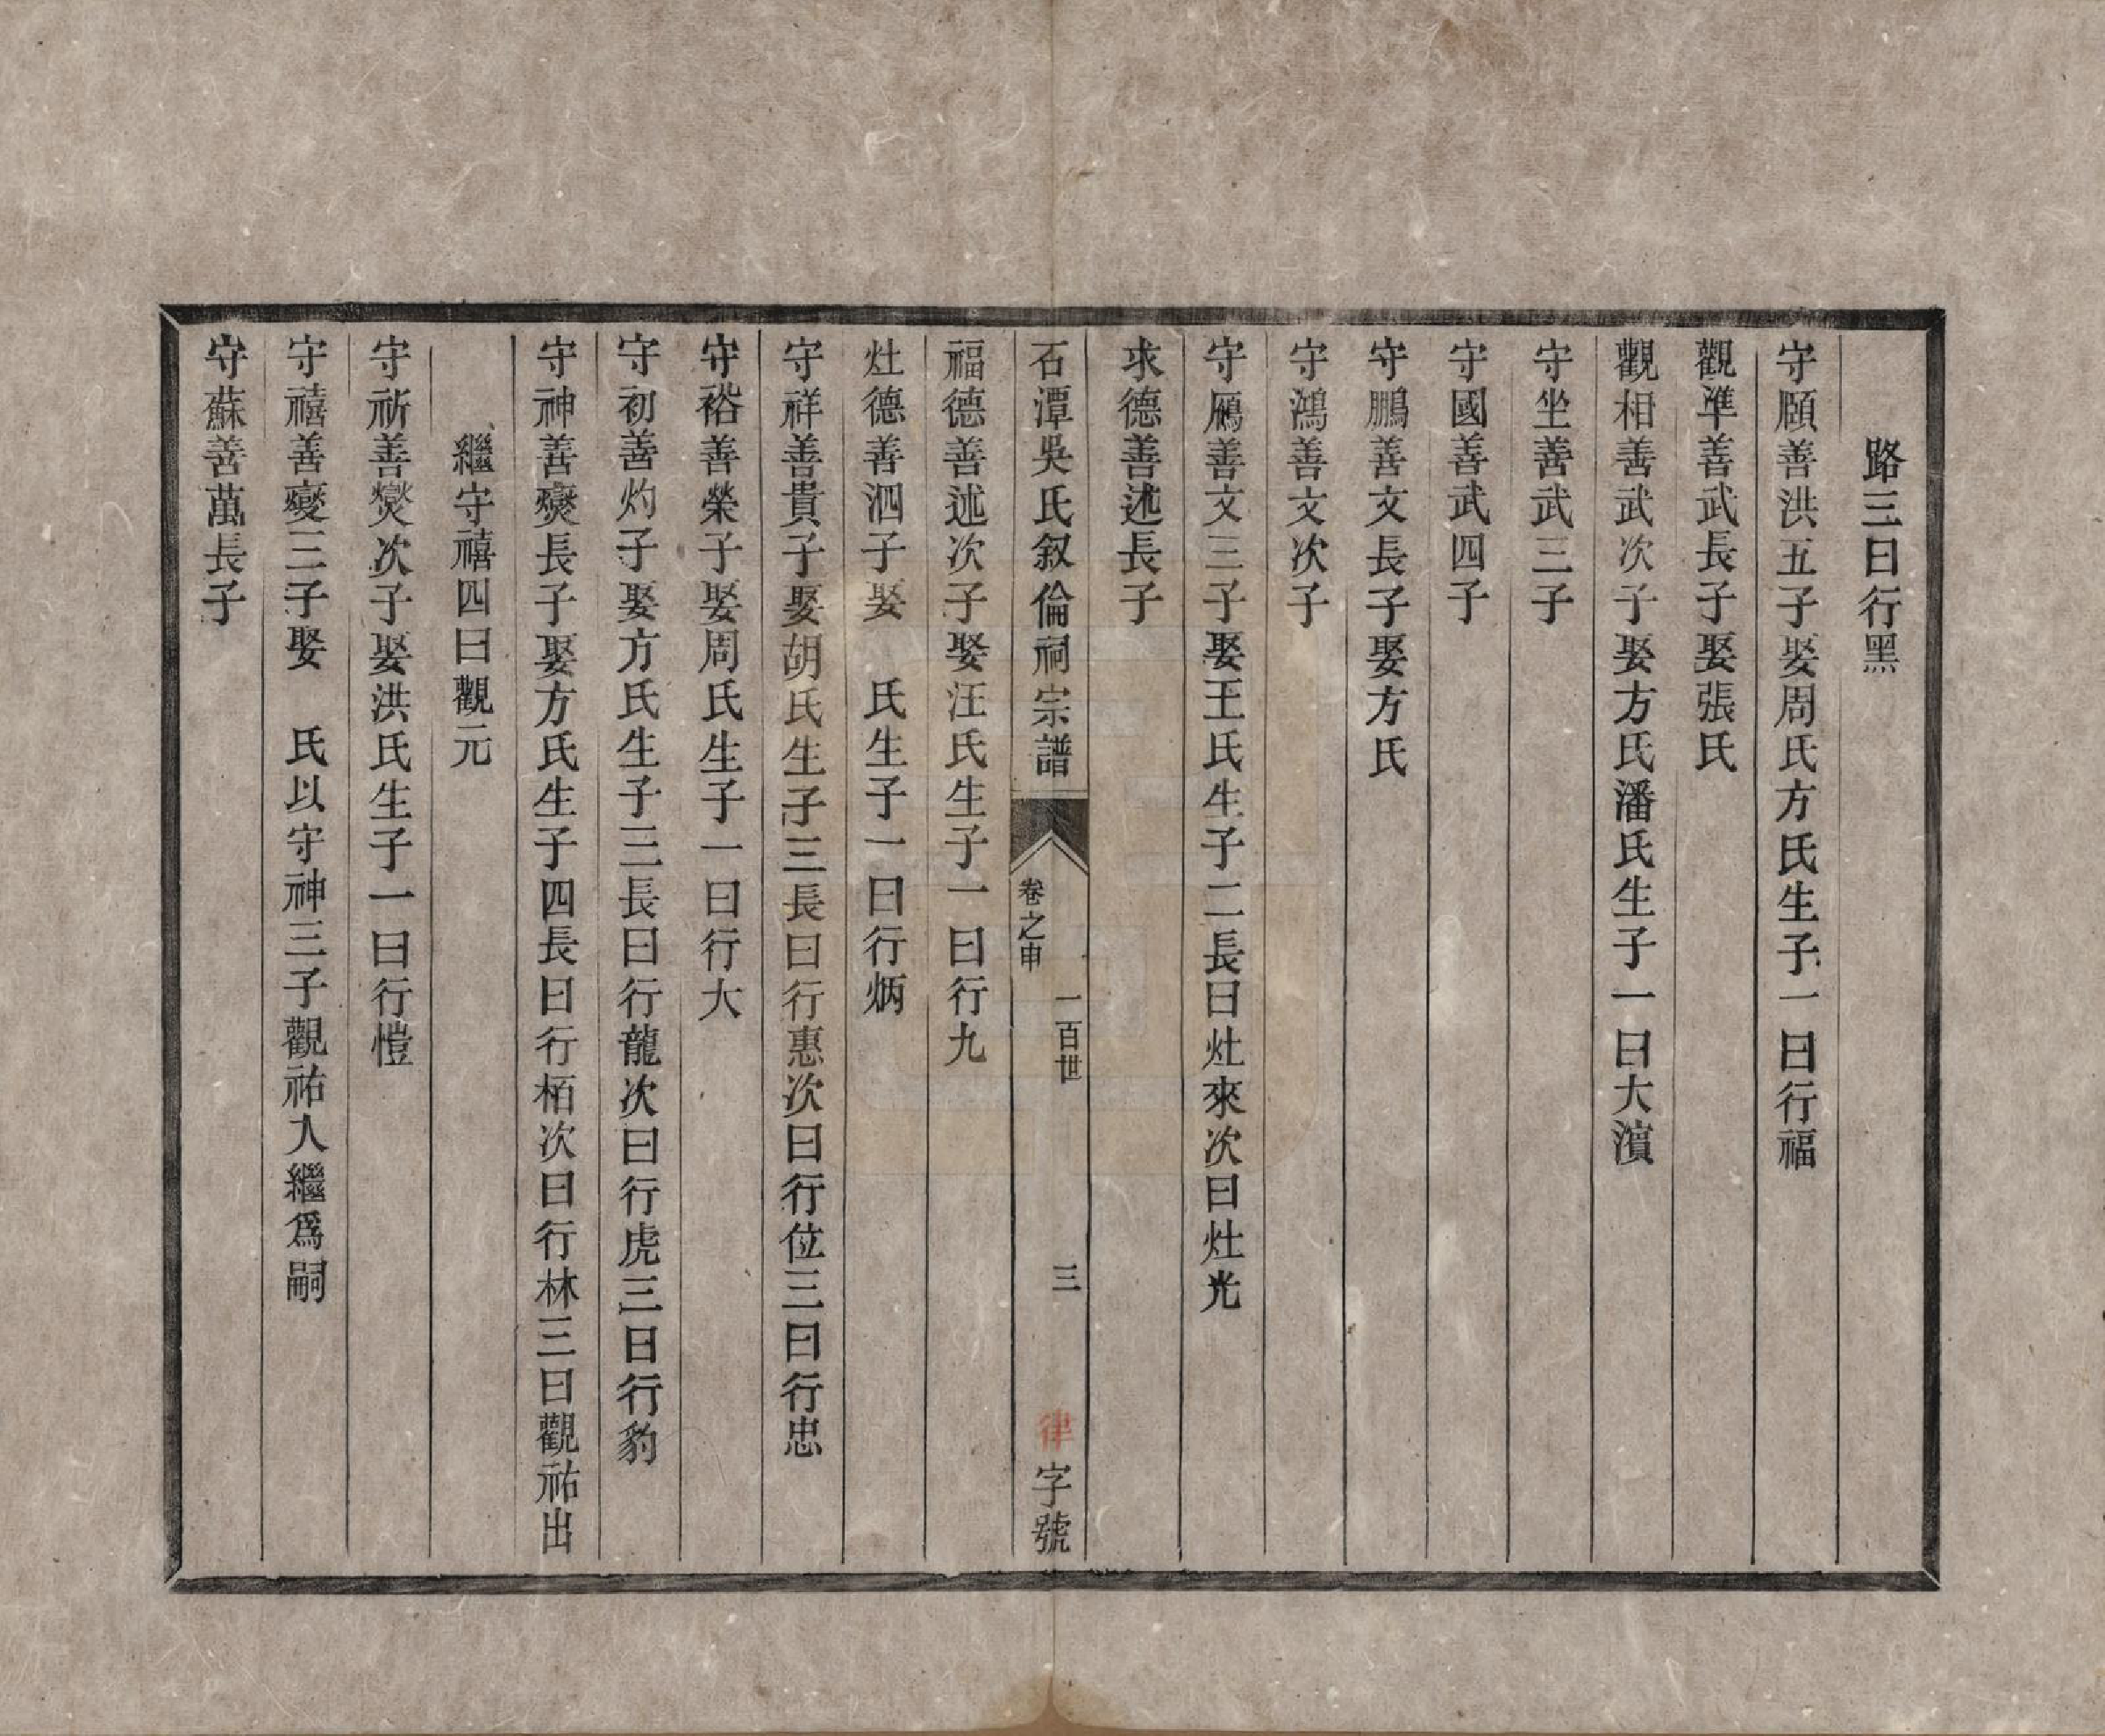 路三曰行黑
守願善洪五子娶周氏方氏生子一曰行福
觀準善武長子娶張氏
觀相善武次子娶方氏潘氏生子一曰大濱
守坐善武三子
守國善武四子
守鵬善文長子娶方氏
守鴻善文次子
守鴈善文三子娶王氏生子二長曰灶來次曰灶光
求德善述長子
石潭吳氏叙倫祠宗譜
卷之申
一百世
三
律字號
福德善述次子娶汪氏生子一曰行九
灶德善泗子娶 氏生子一曰行炳
守祥善貴子娶胡氏生子三長曰行惠次曰行位三曰行忠
守裕善榮子娶周氏生子一曰行大
守初善灼子娶方氏生子三長曰行龍次曰行虎三曰行豹
守神善爕長子娶方氏生子四長曰行栢次曰行林三曰觀祐出
繼守禧四曰觀元
守祈善爕次子娶洪氏生子一曰行愷
守禧善爕三子娶 氏以守神三子觀祐入繼爲嗣
守蘇善萬長子